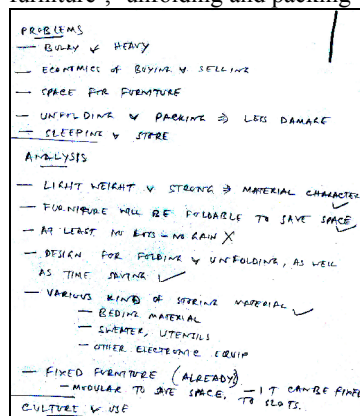 furniture", "unfolding and packing
PROBLEMS
— BULKY & HEAVY
— ECONOMICS OF BUYING & SELLING
— SPACE FOR FURNITURE
— UNFOLDING & PACKING ⇒ LESS DAMAGE
— SLEEPING & STORE
ANALYSIS
— LIGHT WEIGHT & STRONG ⇒ MATERIAL CHARACTE
— FURNITURE WILL BE FOLDABLE TO SAVE SPACE ✓
— AT LEAST NO LOTS – NO GAIN X
— DESIGN FOR FOLDING & UNFOLDING, AS WELL
AS TIME SAVING ✓
— VARIOUS KIND OF STORING MATERIAL ✓
— BEDING MATERIAL
— SWEATER, UTENSILS
— OTHER ELECTRONIC EQUIP
— FIXED FURNITURE (ALREADY)
— MODULAR TO SAVE SPACE, — IT CAN BE FIXED
TO SLOTS.
CULTURE & USE